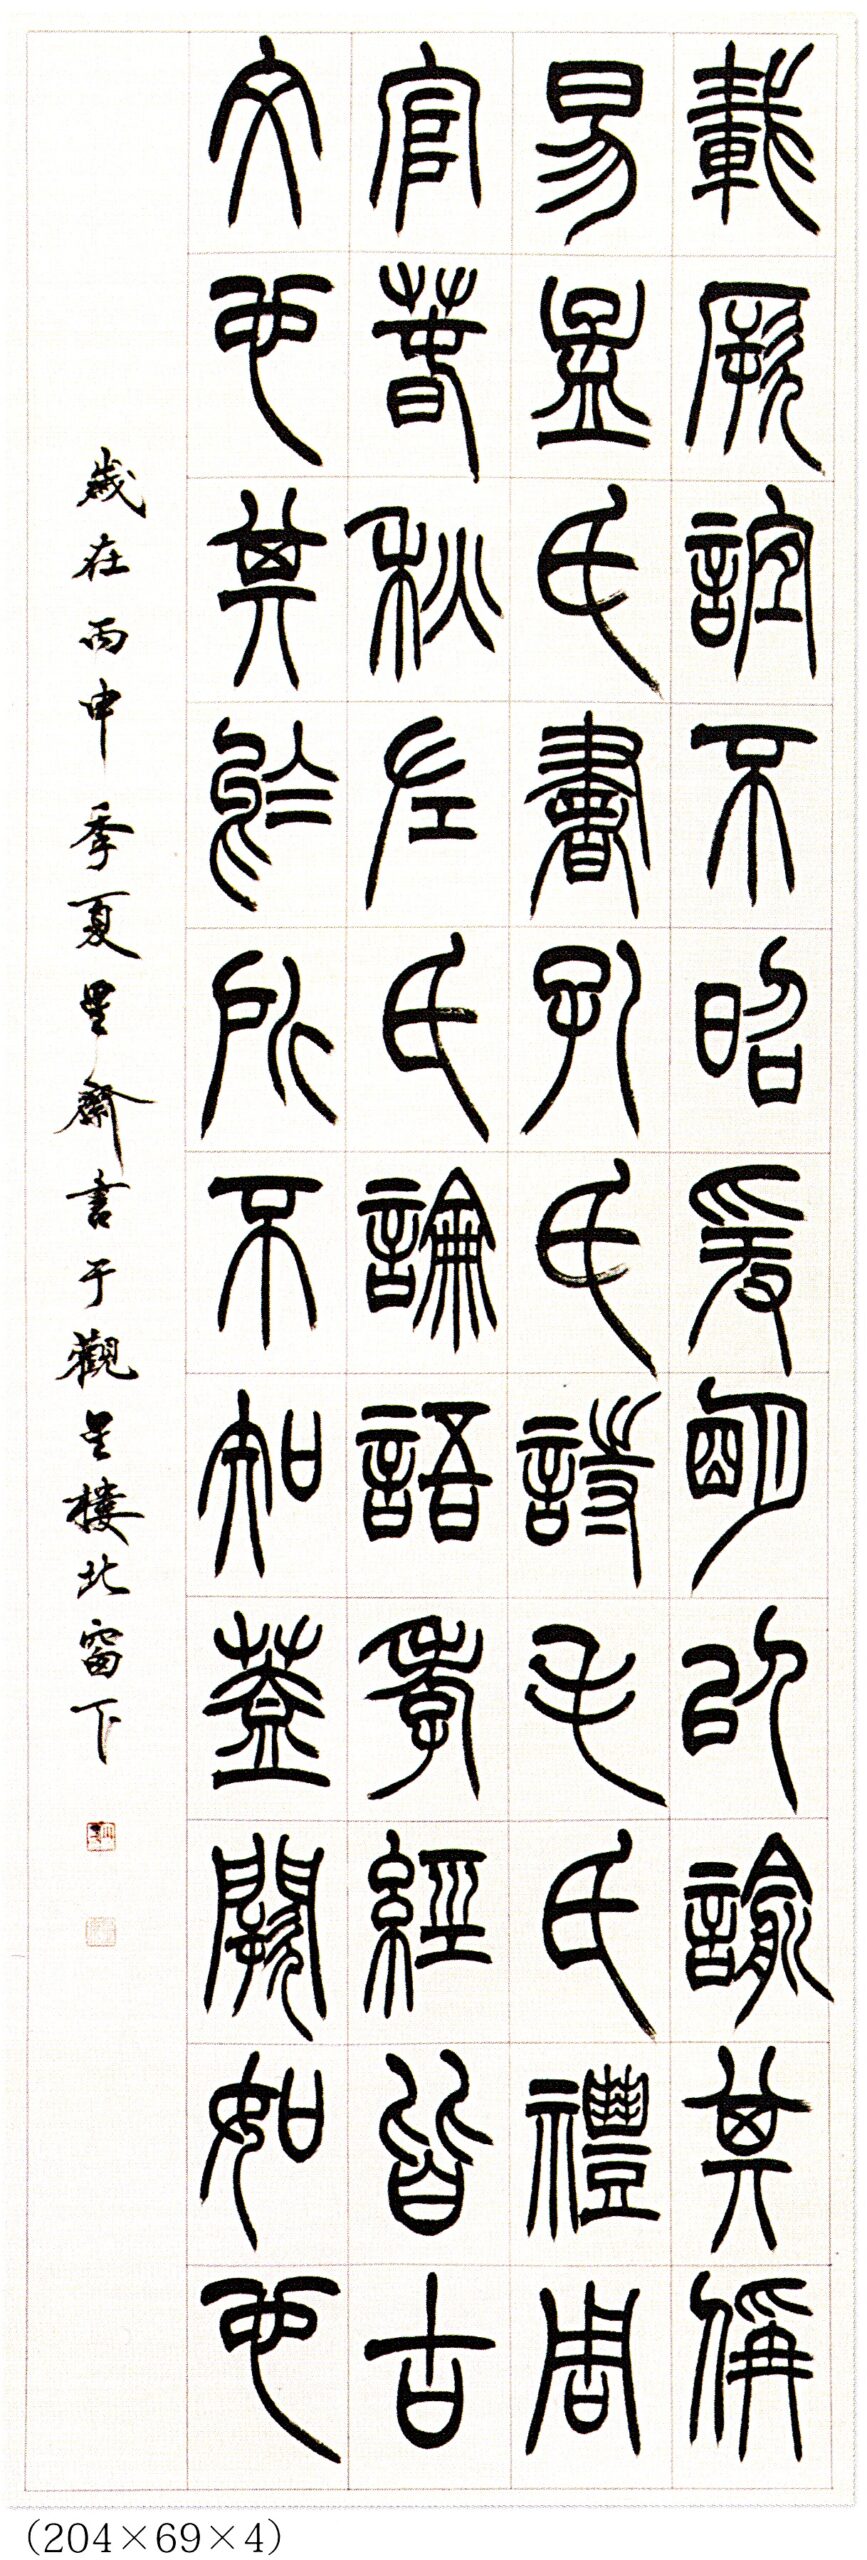 載厥誼不昭爰明以諭其偁
易孟氏書孔氏詩毛氏禮周
官春秋左氏論語孝經皆古
文也其於所不知蓋闕如也
歲在丙申季夏齋書于觀星樓北窗下
(204×69×4)